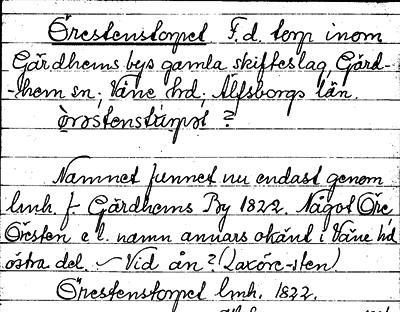 Örestenstorpet F.d. torp inom
Gärdhems bys gamla skifteslag, Gärd-
-hem sn; Väne hd; Älfsborgs län.
òrəstenstàrpət ?
Namnet funnet nu endast genom
lmh. f. Gärdhems By 1822. Något Öre
Öresten e l. namn annars okänt i Väne hd
östra del. – Vid ån? (Laxöre-sten)
Örestenstorpet lmh. 1822.